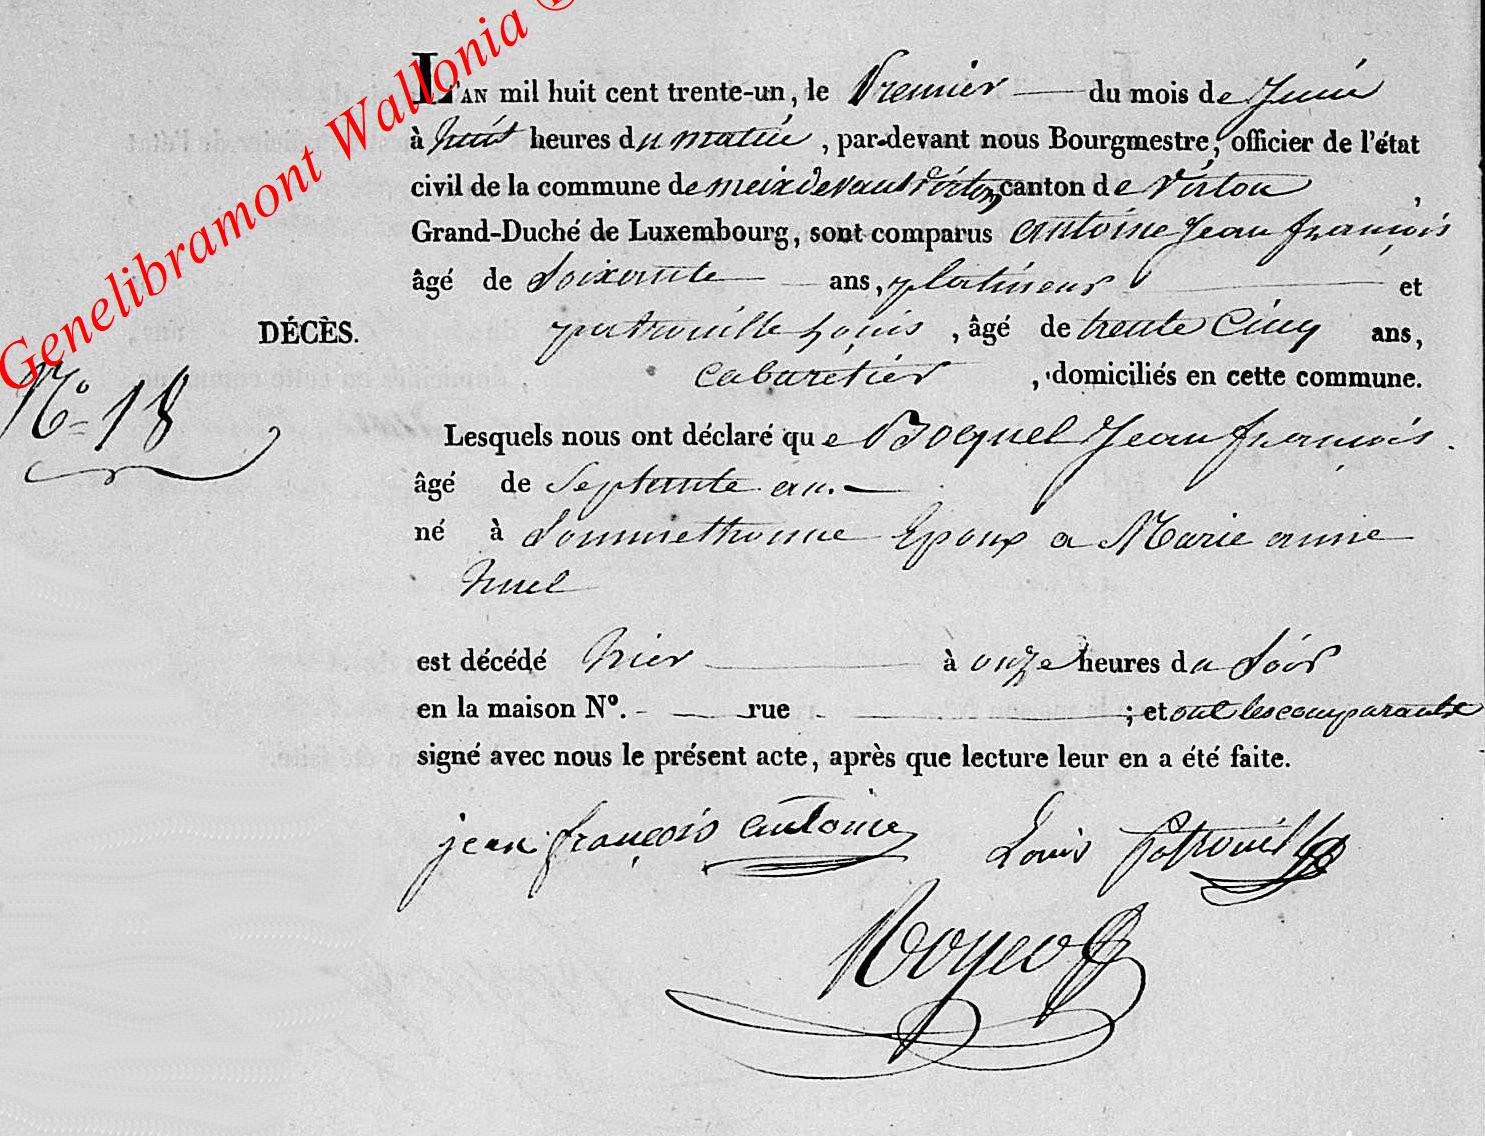 Genelibramont Wallonia
L'AN mil huit cent trente-un, le Premier du mois de Juin
à huit heures du matin, par-devant nous Bourgmestre, officier de l'état
civil de la commune de meix devant Virton, canton de Virton,
Grand-Duché de Luxembourg, sont comparus antoine Jean françois
âgé de Soixante ans, platineur et
DÉCÈS.
patrouille Louis, âgé de trente Cinq ans,
cabaretier, domiciliés en cette commune.
No. 18
Lesquels nous ont déclaré que Bocquel Jean françois.
âgé de Septente an.
né à Sommethonne Epoux a Marie anne
est décédé hier à onze heures du Soir
en la maison N°. rue ; et ont les comparants
signé avec nous le présent acte, après que lecture leur en a été faite.
jean françois antoine Louis Patrouille